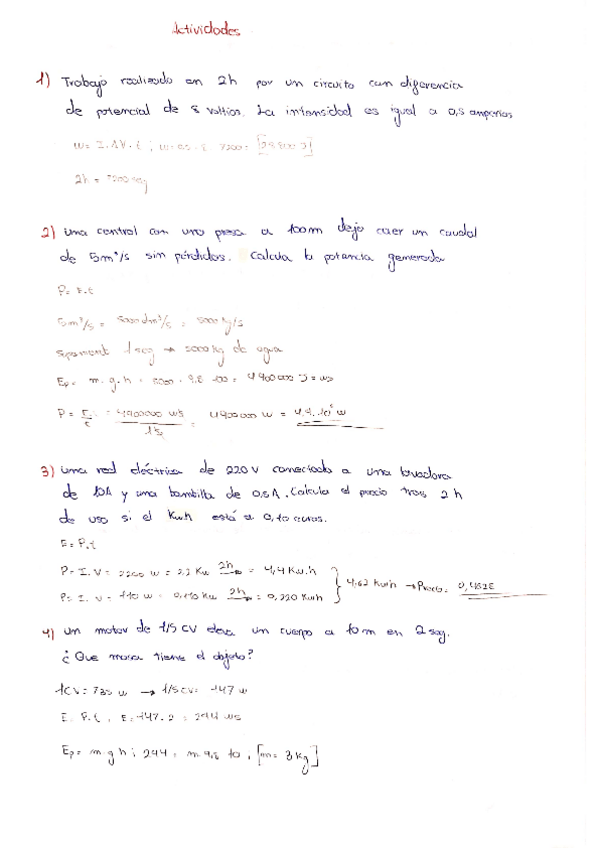 Actividades
1) Trabajo realizado en 2h por un circuito con diferencia
de potencial de 8 voltios. La intensidad es igual a 0,5 amperios
W = I.ΔV.t ; W = 0,5 · 8 · 7200 = [28800 J]
2h = 7200 seg
2) Una central con una presa a 100m deja caer un caudal
de 5m³/s sin pérdidas. Calcula la potencia generada
5m³/s = 5000dm³/s = 5000 kg/s
1 seg → 5000 kg de agua
Ep = m.g.h = 5000 · 9,8 · 100 = 4900000 J = ws
P = E/t = 4900000 ws / 1s = 4900000 w = 4,9.10⁶ w
3) Una red eléctrica de 220V conectada a una lavadora
de 10A y una bombilla de 0,5A. Calcula el precio tras 2h
de uso si el Kwh está a 0,10 euros.
E = P.t
P = I.V = 2200 w = 2,2 Kw 2h → = 4,4 Kw.h
P = I.V = 110 w = 0,110 Kw 2h → = 0,220 Kwh } 4,62 Kwh → Precio = 0,462€
4) Un motor de 1/5 CV eleva un cuerpo a 10m en 2 seg.
¿Que masa tiene el objeto?
1CV = 735 w → 1/5 CV = 147 w
E = P.t ; E = 147.2 = 294 ws
Ep = m.g.h ; 294 = m 9,8 10 ; [m = 3 Kg]